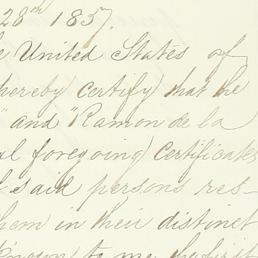 28th 1857.
e United States of
hereby certify) that he
" and "Ramon de la
al foregoing) Certificates
d said persons res-
hem in their distinct
known to me the first